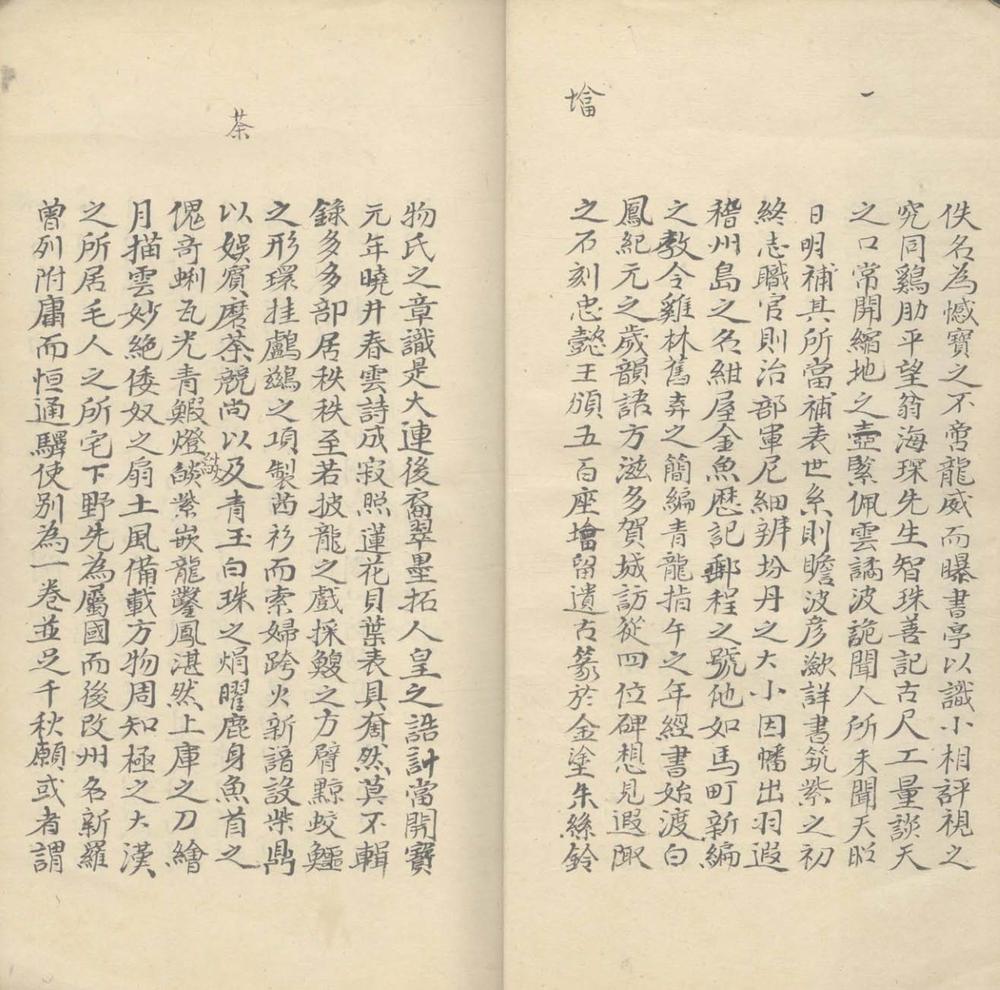 一
墖
佚名為憾寶之不啻龍威而曝書亭以識小相評視之
究同鷄肋平望翁海琛先生智珠善記古尺工量談天
之口常開縮地之壺繫佩雲譎波詭聞人所未聞天昭
日明補其所當補表世系則瞻波彥瀲詳書筑紫之初
終志職官則治部軍尼細辨坋丹之大小因幡出羽遐
稽州島之名紺屋金魚歷記郵程之號他如馬町新編
之教令雞林舊弆之簡編青龍指午之年經書始渡白
鳳紀元之歲韻語方滋多賀城訪從四位碑想見遐陬
之石刻忠懿王頒五百座墖留遺古篆於金塗朱絲鈴
茶
物氏之章識是大連後裔翠墨拓人皇之誥計當開寶
元年曉井春雲詩成寂照蓮花貝葉表具奝然莫不輯
錄多多部居秩秩至若披龍之戲採鰒之方臂黥蛟鱷
之形環挂鸕鷀之項製茜衫而索婦跨火新諳設柴鼎
以娛賓磨茶競尚以及青玉白珠之焆曜鹿身魚首之
傀奇蜊瓦光青鰕燈燄紫嵌龍鑿鳳湛然上庫之刀繪
月描雲妙絕倭奴之扇土風備載方物周知極之大漢
之所居毛人之所宅下野先為屬國而後改州名新羅
曾列附庸而恒通驛使別為一卷並足千秋願或者謂